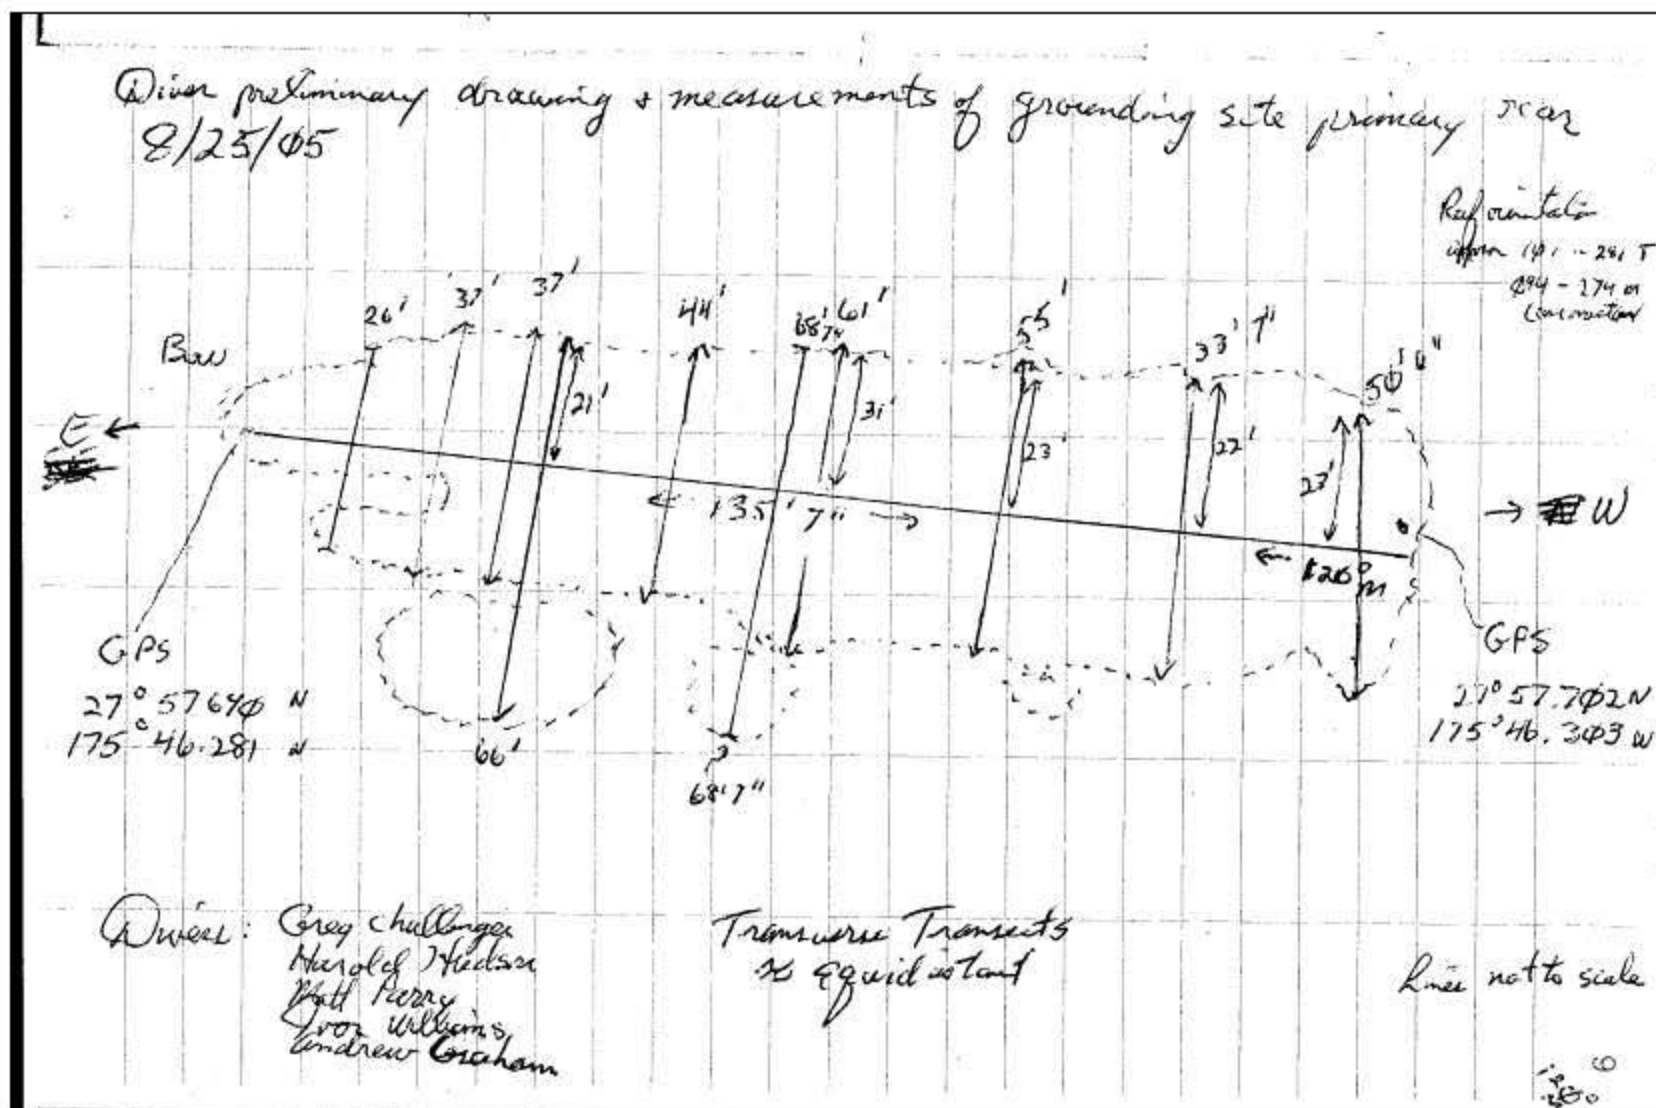 Diver preliminary drawing & measurements of grounding site primary scar
8/25/05
Reef orientation
approx 101 - 281 T
094 - 274 m
Bow
26'
37'
37'
44'
68' 7"
61'
55'
33' 7"
50' 6"
21'
31'
23'
22'
23'
E ←
← 135' 7" →
→ W
← 120° m
GPS
27° 57 640 N
175° 46.281 W
GPS
27° 57.702 N
175° 46.303 W
66'
68' 7"
Divers: Greg Challenger
Harold Hudson
Matt Parry
Ivor Williams
Andrew Graham
Transverse Transects
≈ equidistant
Lines not to scale